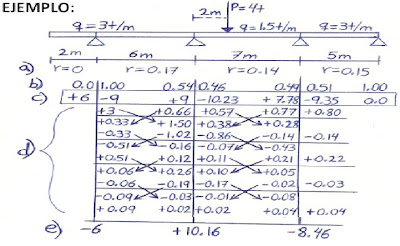 EJEMPLO:
2m P=4t
q=3t/m q=1.5t/m q=3t/m
2m 6m 7m 5m
a) r=0 r=0.17 r=0.14 r=0.15
b) 0.0 1.00 0.54 0.46 0.49 0.51 1.00
c) +6 -9 +9 -10.23 +7.78 -9.35 0.0
+3 +0.66 +0.57 +0.77 +0.80
+0.33 +1.50 +0.38 +0.28
-0.33 -1.02 -0.86 -0.14 -0.14
d) -0.51 -0.16 -0.07 -0.43
+0.51 +0.12 +0.11 +0.21 +0.22
+0.06 +0.26 +0.10 +0.05
-0.06 -0.19 -0.17 -0.02 -0.03
-0.09 -0.03 -0.01 -0.08
+0.09 +0.02 +0.02 +0.04 +0.04
e) -6 +10.16 -8.46